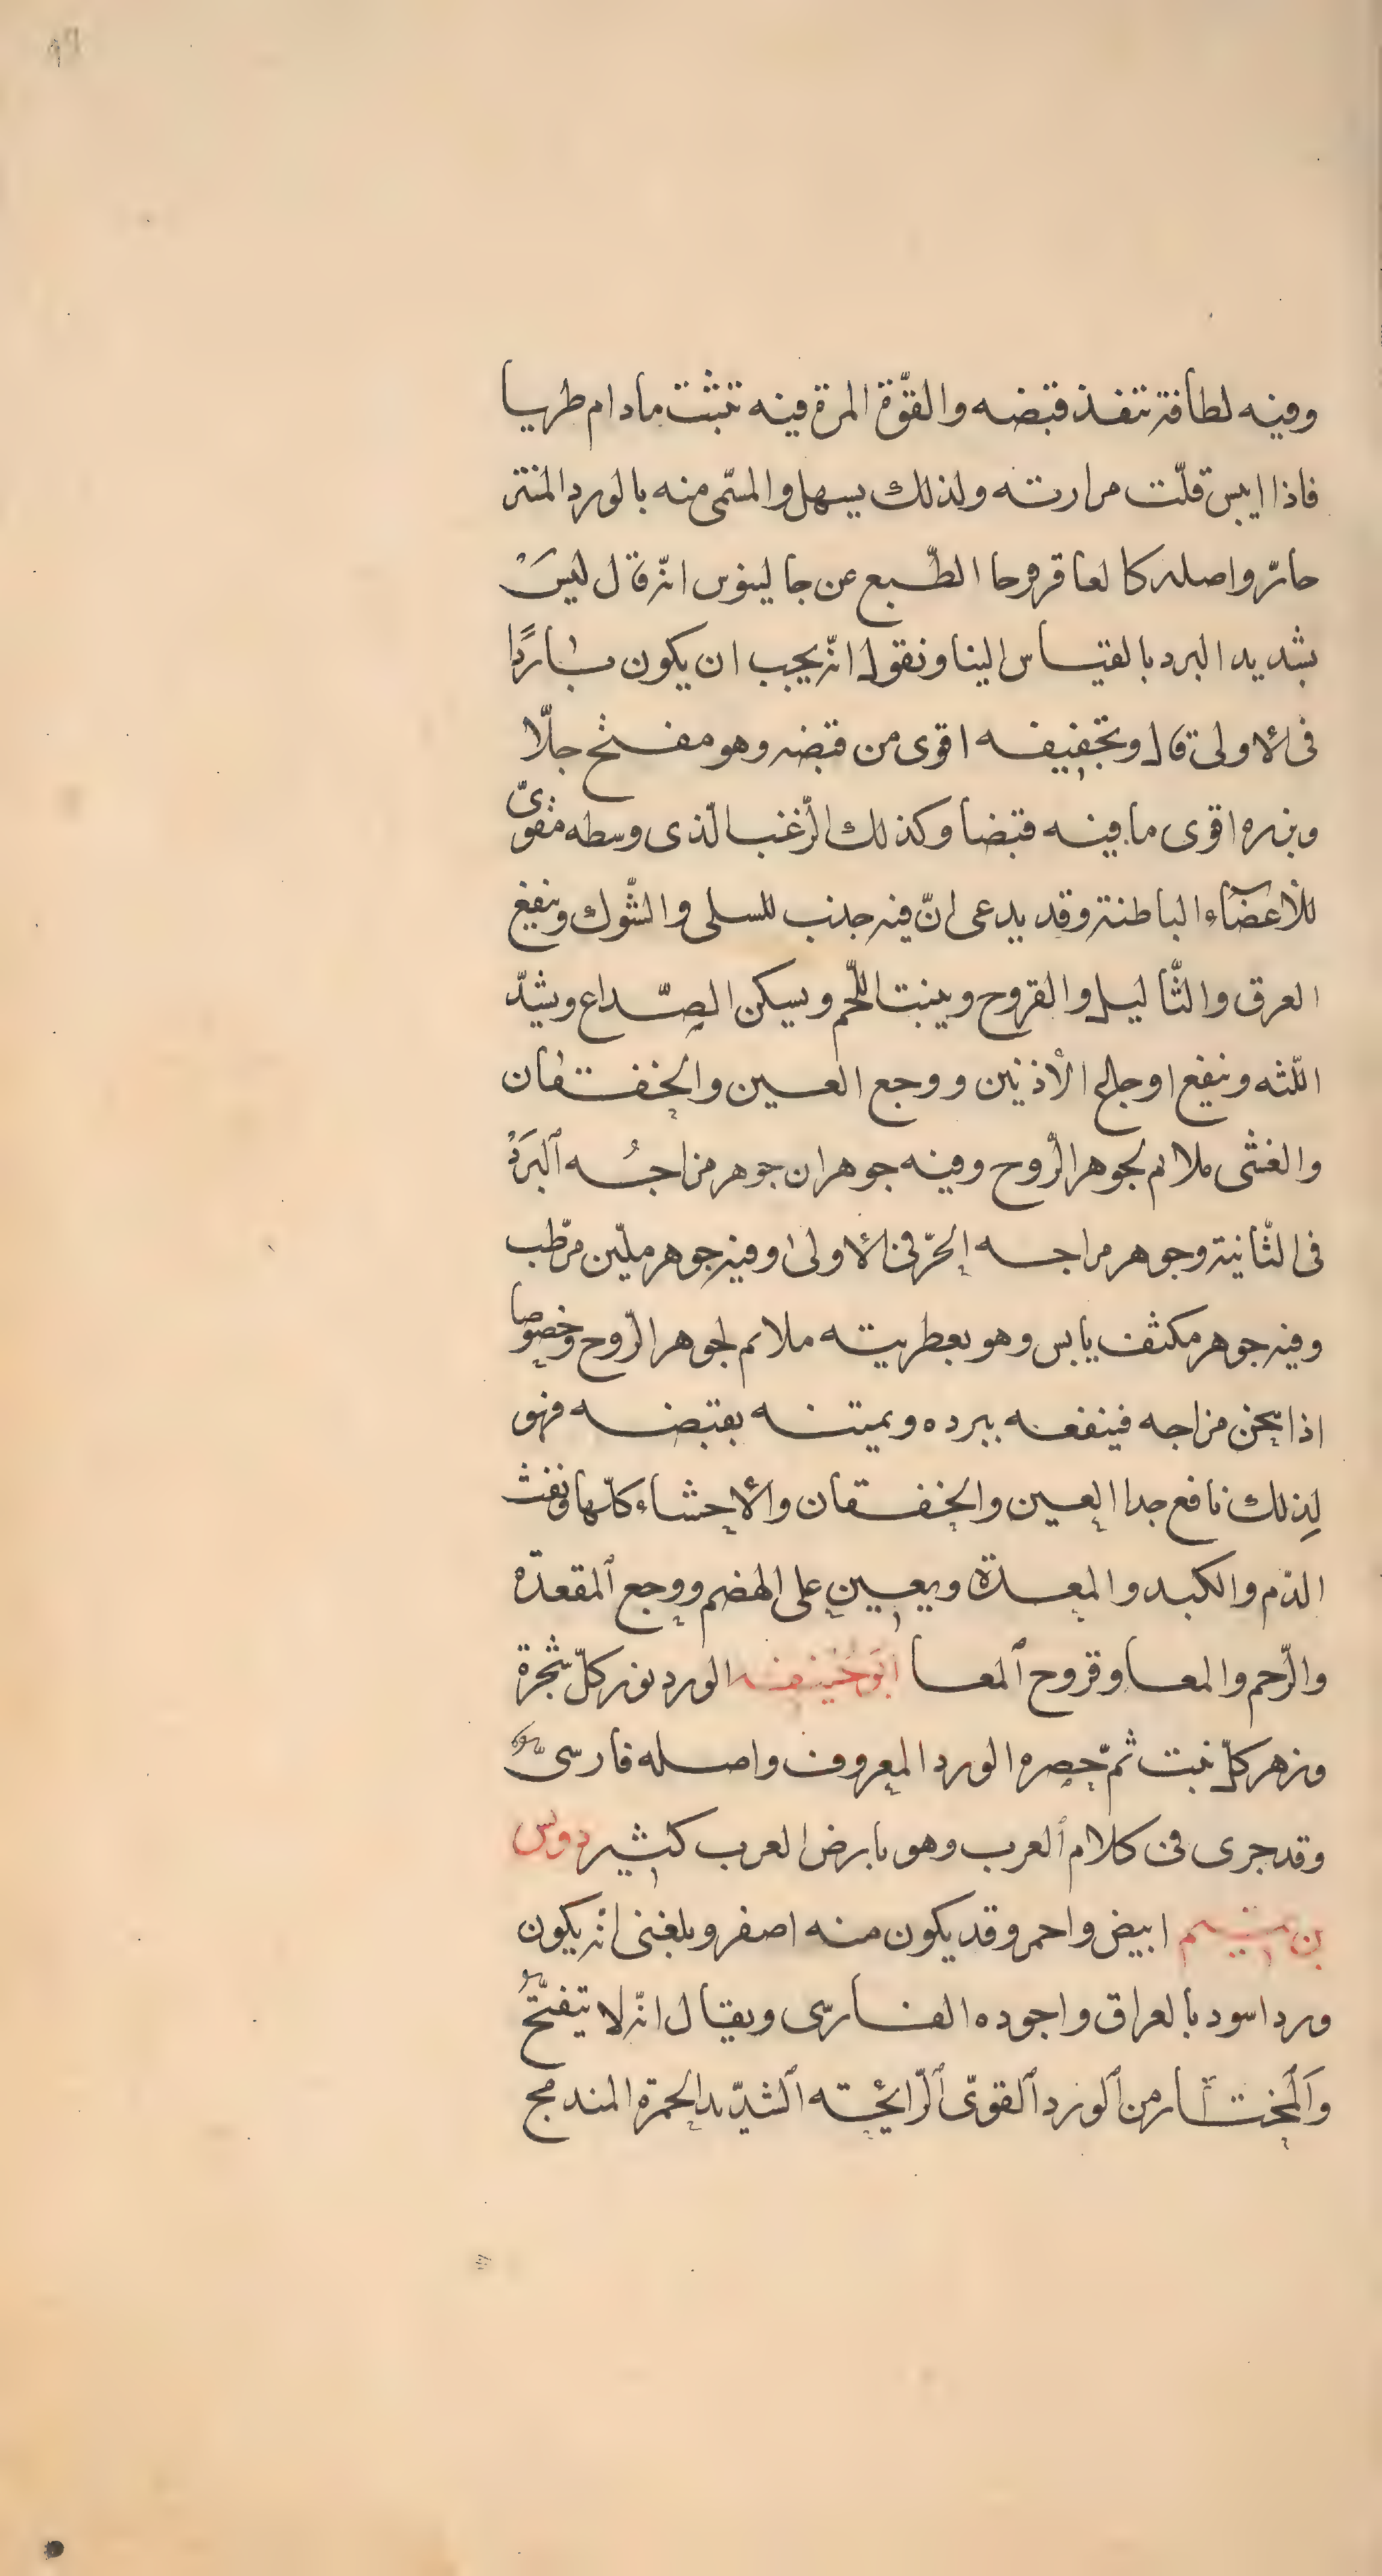 ٩٩
وفيه لطافة تنفذ قبضه والقوّة المرة فيه تثبت مادام طريا
فاذا ايبس قلّت مرارته ولذلك يسهل والمسمّى منه بالورد المنتن
حارّ واصله كالعاقرقرحا الطّبع عن جالينوس انّه قال ليسَ
بشديد البرد بالقياس الينا ونقول انّه يجب ان يكون باردًا
فى الاولى قال وتجفيفه اقوى من قبضه وهو مفتح جلّا
وبزره اقوى ما فيه قبضا وكذلك الزّغب الّذى وسطه مقوىّ
للأعضَآء الباطنة وقد يدعى انّ فيه جذب للسلى والشّوك وينفع
العرق والثّاليل والقروح وينبت اللّحم ويسكن الصّداع ويشدّ
اللّثه وينفع اوجاع الأذنين ووجع العين والخفقان
والغشى ملائم لجوهر الرّوح وفيه جوهران جوهر مزاجُه البَردْ
فى الثّانية وجوهر مزاجه الحرّ فى الاولى اوفيه جوهر مليّن مرّطب
وفيه جوهر مكثف يابس وهو بعطريته ملائم لجوهر الرّوح وخصوصا
اذا سخن مزاجه فينفعه ببرده ويمتنه بقبضه فهو
لِذلك نافع جدا العين والخفقان والاحشاء كلّها ونفث
الدّم والكبد والمعدة ويعين على الهضم ووجع المقعدة
والرّحم والمعا وقروح المعا ابَو حَنيفه الورد نور كلّ شجرة
وزهر كلّ نبت ثمّ حصره الورد المعروف واصله فارسىّ
وقد جرى فى كلام العرب وهو بارض العرب كثير دوس
بن تميم ابيض واحمر وقد يكون منه اصفر وبلغنى انّه يكون
ورد اسود بالعراق واجوده الفارسى ويقال انّه لا يتفتّح
وَالمختار من الورد القوىّ الرّائحته الشدّيد الحمرة المندمج